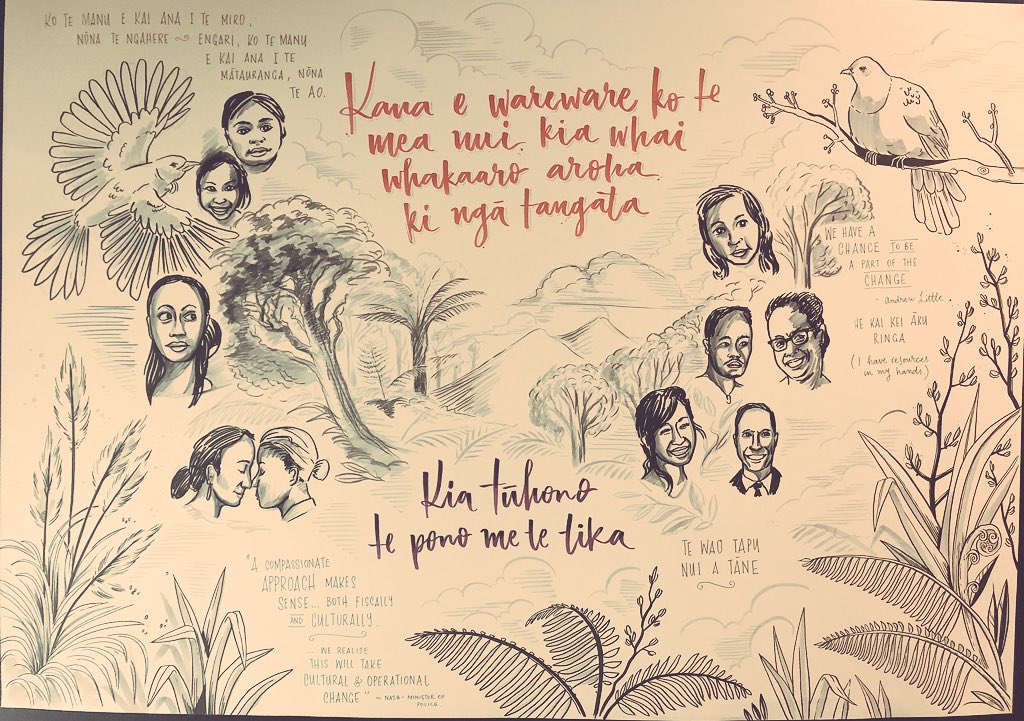 KO TE MANU E KAI ANA I TE MIRO,
NŌNA TE NGAHERE ~ ENGARI, KO TE MANU
E KAI ANA I TE
MĀTAURANGA, NŌNA
TE AO.
Kaua e wareware ko te
mea nui, kia whai
whakaaro aroha
ki ngā tangata
WE HAVE A
CHANCE TO BE
A PART OF THE
CHANGE
- Andrew Little.
HE KAI KEI ĀKU
RINGA
(I have resources
in my hands.)
Kia tūhono
te pono me te tika
"A COMPASSIONATE
APPROACH MAKES
SENSE... BOTH FISCALLY
AND CULTURALLY.
... WE REALISE
THIS WILL TAKE
CULTURAL & OPERATIONAL
CHANGE" ~ NASH - MINISTER OF
POLICE.
TE WAO TAPU
NUI A TĀNE